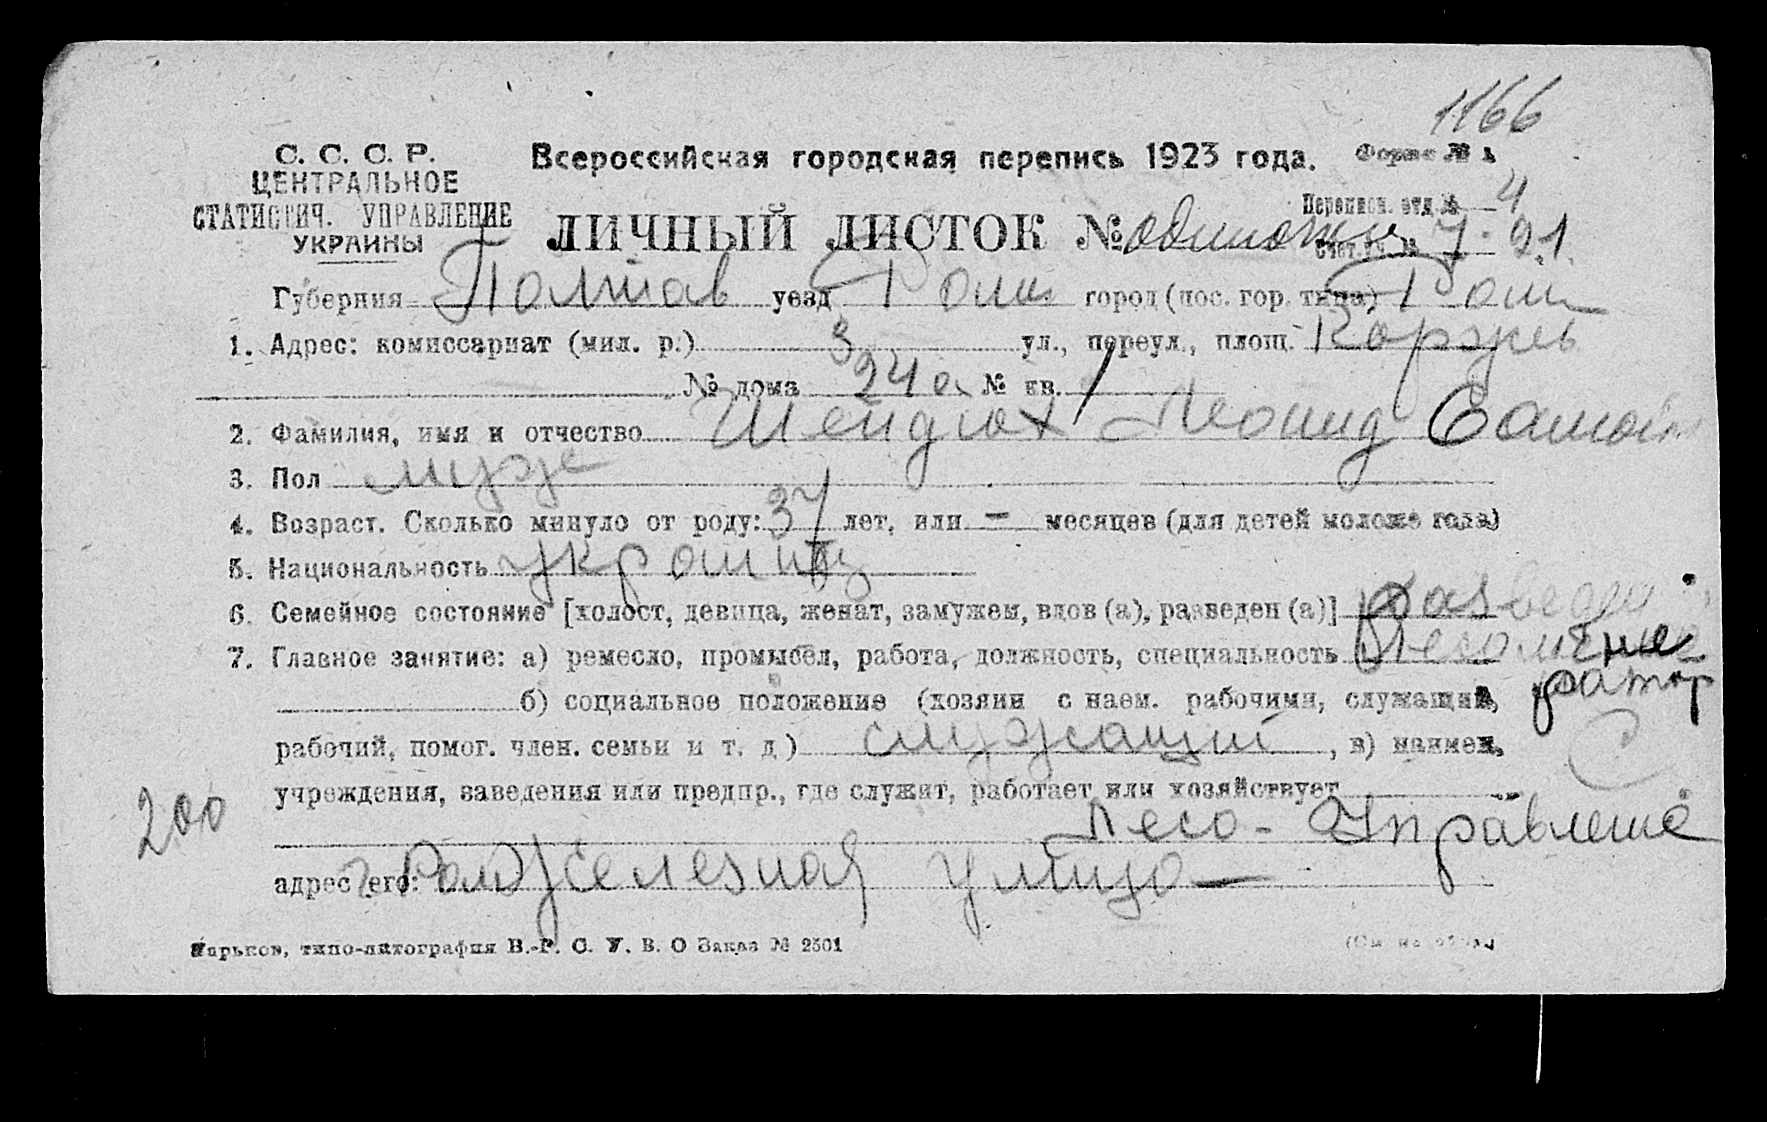 1166
С. С. С. Р.
ЦЕНТРАЛЬНОЕ
СТАТИСТИЧ. УПРАВЛЕНИЕ
УКРАИНЫ
Всероссийская городская перепись 1923 года. Форма № 1
Перепиcн. отд. № 4
ЛИЧНЫЙ ЛИСТОК № одиночки Счетн. уч. № 7-21
Губерния Полтав уезд Ром город (пос. гор. типа) Ром
1. Адрес: комиссариат (мил. р.) 3 ул., переул., площ. Коржев
№ дома 24а № кв. 1
2. Фамилия, имя и отчество Шендюх Леонид Самой
3. Пол муж
4. Возраст. Сколько минуло от роду: 37 лет, или — месяцев (для детей моложе года)
5. Национальность украинц
6. Семейное состояние [холост, девица, женат, замужем, вдов (а), разведен (а)] Разведен
7. Главное занятие: а) ремесло, промысел, работа, должность, специальность
б) социальное положение (хозяин с наем. рабочими, служащий,
рабочий, помог. член. семьи и т. д.) служащий, в) наимен.
учреждения, заведения или предпр., где служит, работает или хозяйствует
200
Лесо-Управление
адрес его: г Ром Железная улица —
Харьков, типо-литография В.-Р. С. У. В. О Заказ № 2501 (См. на обор.)